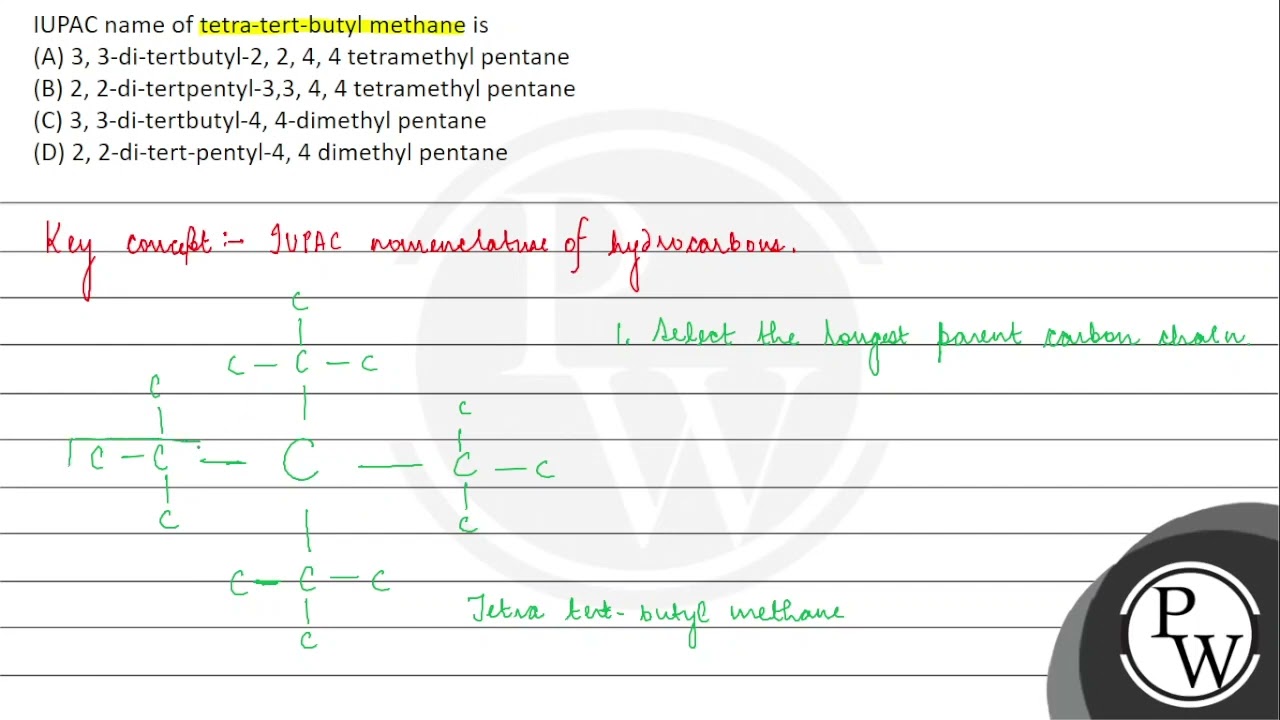 IUPAC name of tetra-tert-butyl methane is
(A) 3, 3-di-tertbutyl-2, 2, 4, 4 tetramethyl pentane
(B) 2, 2-di-tertpentyl-3,3, 4, 4 tetramethyl pentane
(C) 3, 3-di-tertbutyl-4, 4-dimethyl pentane
(D) 2, 2-di-tert-pentyl-4, 4 dimethyl pentane
Key concept :- IUPAC nomenclature of hydrocarbons.
C
1. Select the longest parent carbon chain.
C - C - C
C
C
C - C - C - C - C
C
C
C - C - C
Tetra tert-butyl methane
C
PW
PW